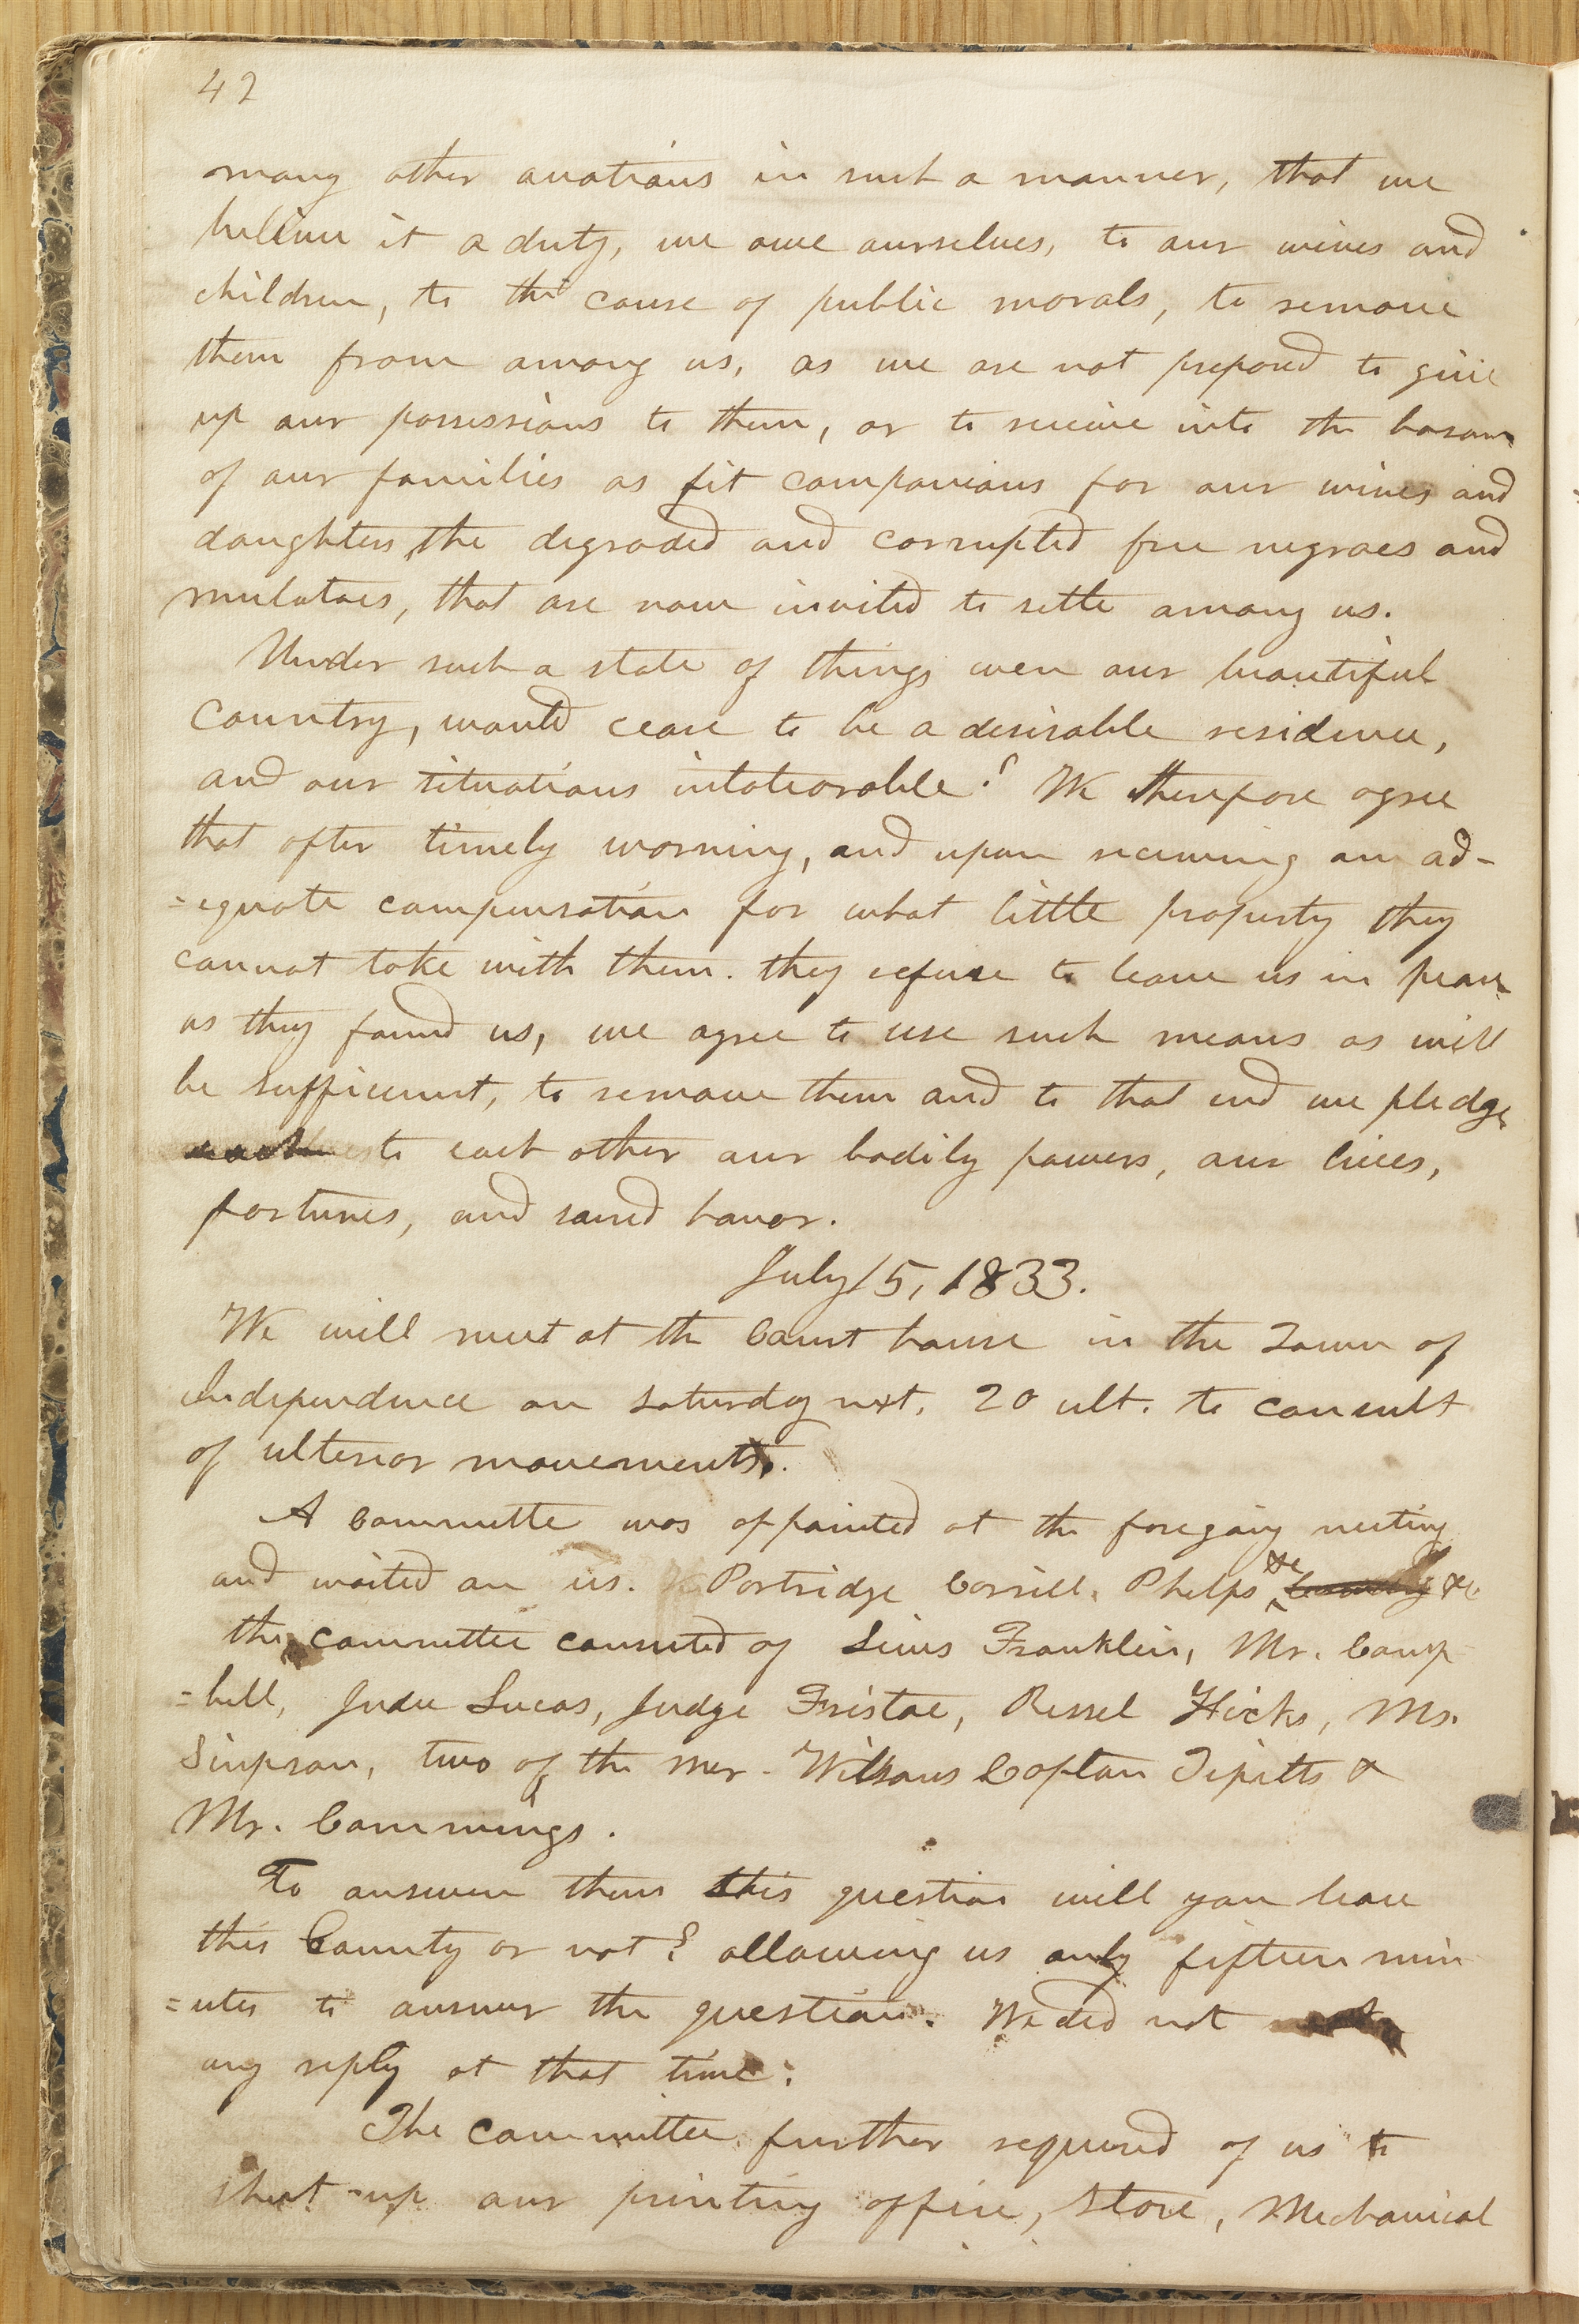 42
many other avations in such a manner, that we
believe it a duty, we owe ourselves, to our wives and
children, to the cause of public morals, to remove
them from among us, as we are not prepared to give
up our possessions to them, or to receive into the bosom
of our families as fit companions for our wives and
daughters, the degraded and corrupted free negroes and
mulatoes, that are now invited to settle among us.
Under such a state of things even our beautiful
country, would cease to be a desirable residence,
and our situations intoleorable? We therefore agree
that after timely warning, and upon receiving an ad-
=equate compensation for what little property they
cannot take with them. they refuse to leave us in peace
as they found us, we agree to use such means as will
be sufficient, to remove them and to that end we pledge
to each other our bodily powers, our lives,
fortunes, and sacred honor.
July 15, 1833.
We will meet at the Court house in the Town of
Independence on Saturday next, 20 ult. to consult
of ulterior movements.
A Committe was appointed at the foregoing meeting
and waited on us. Partridge Corrill, Phelps &c &c
the committee consisted of Lewis Franklin, Mr. Camp
=bell, Judu Lucas, Judge Fristoe, Russel Hicks, Mr.
Simpson, two of the Mer. Wilsons Captan Tipitts &
Mr. Cammings.
To answer them this question will you leave
this County or not? allowing us only fifteen min
=utes to answer the question. We did not
any reply at that time:
The committee further required of us to
shut up our printing office, Store, Mechanical